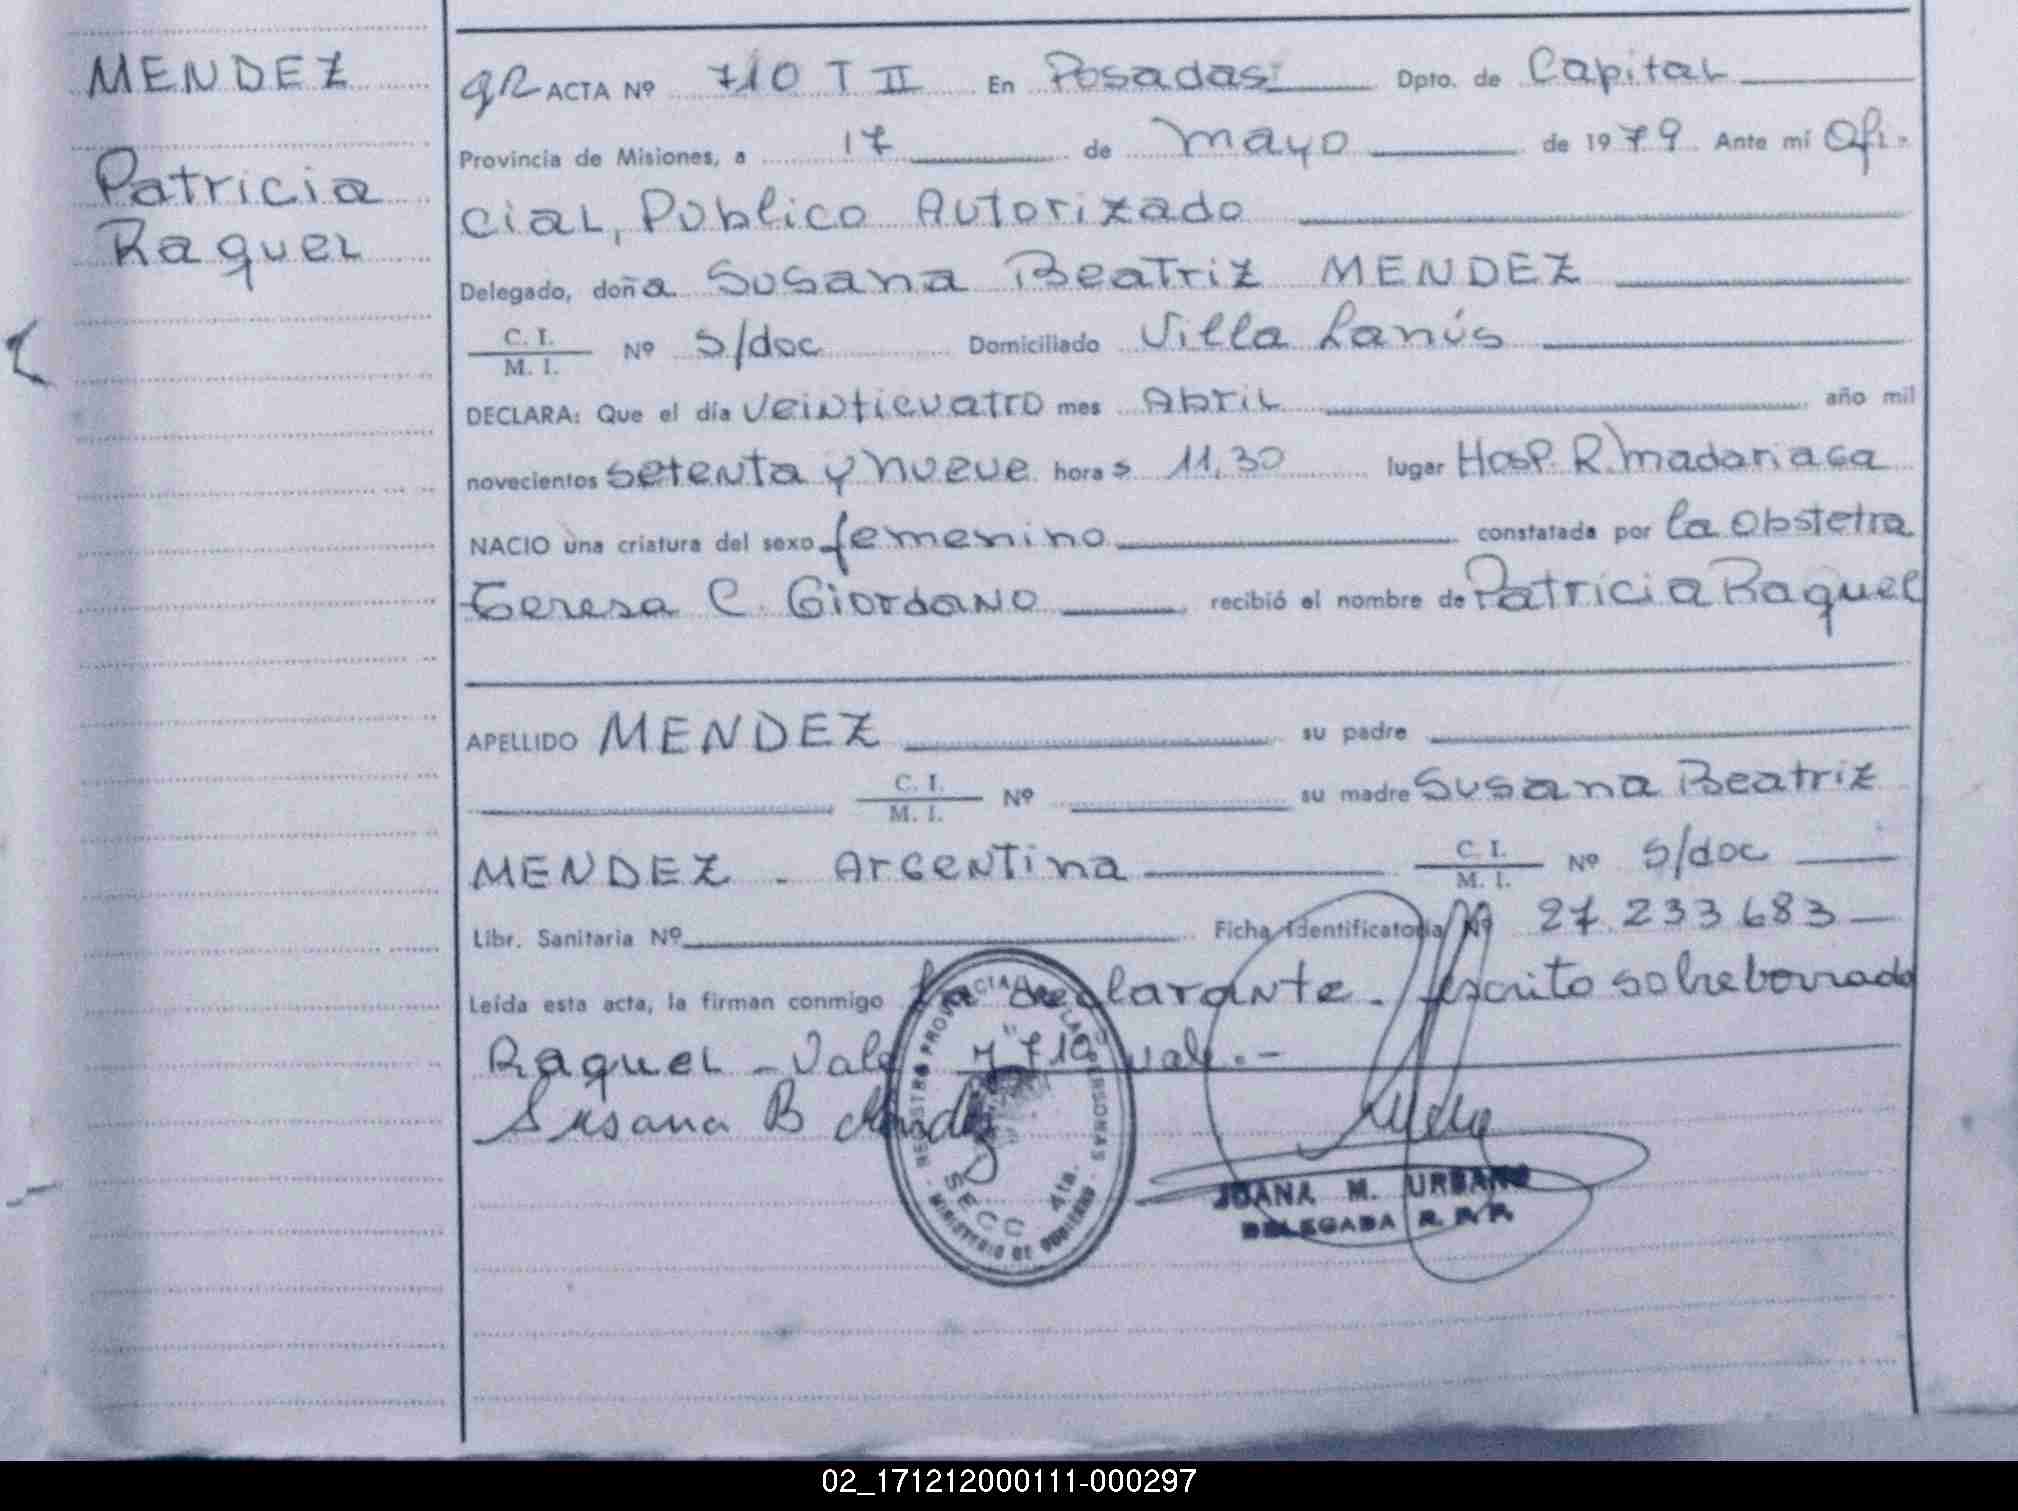 MENDEZ
Patricia
Raquel
ACTA Nº 710 T II En Posadas Dpto. de Capital
Provincia de Misiones, a 17 de mayo de 1979 Ante mí Ofi-
cial, Publico Autorizado
Delegado, doña Susana Beatriz MENDEZ
C. I.
M. I.
Nº s/doc Domiciliado Villa Lanús
DECLARA: Que el día veinticuatro mes Abril año mil
novecientos setenta y nueve horas 11,30 lugar Hosp. R. madariaga
NACIO una criatura del sexo femenino constatada por la obstetra
Teresa C. Giordano recibió el nombre de Patricia Raquel
APELLIDO MENDEZ su padre
C. I.
M. I.
Nº su madre Susana Beatriz
MENDEZ - Argentina
C. I.
M. I.
Nº s/doc
Libr. Sanitaria Nº Ficha Identificatoria Nº 27.233.683
Leída esta acta, la firman conmigo La declarante. Escrito sobreborrado
Raquel - Vale 710 vale.-
Susana B Mendez
REGISTRO PROVINCIAL DE LAS PERSONAS
SECC 4ta.
MINISTERIO DE GOBIERNO
JUANA M. URBANO
DELEGADA R. P. P.
02_171212000111-000297